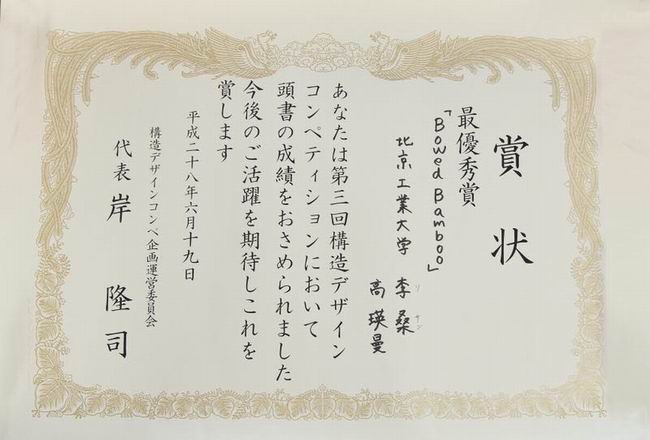 賞状
最優秀賞
「Bowed Bamboo」
北京工業大学 李桑
高瑛曼
あなたは第三回構造デザイン
コンペティションにおいて
頭書の成績をおさめられました
今後のご活躍を期待しこれを
賞します
平成二十八年六月十九日
構造デザインコンペ企画運営委員会
代表 岸 隆司